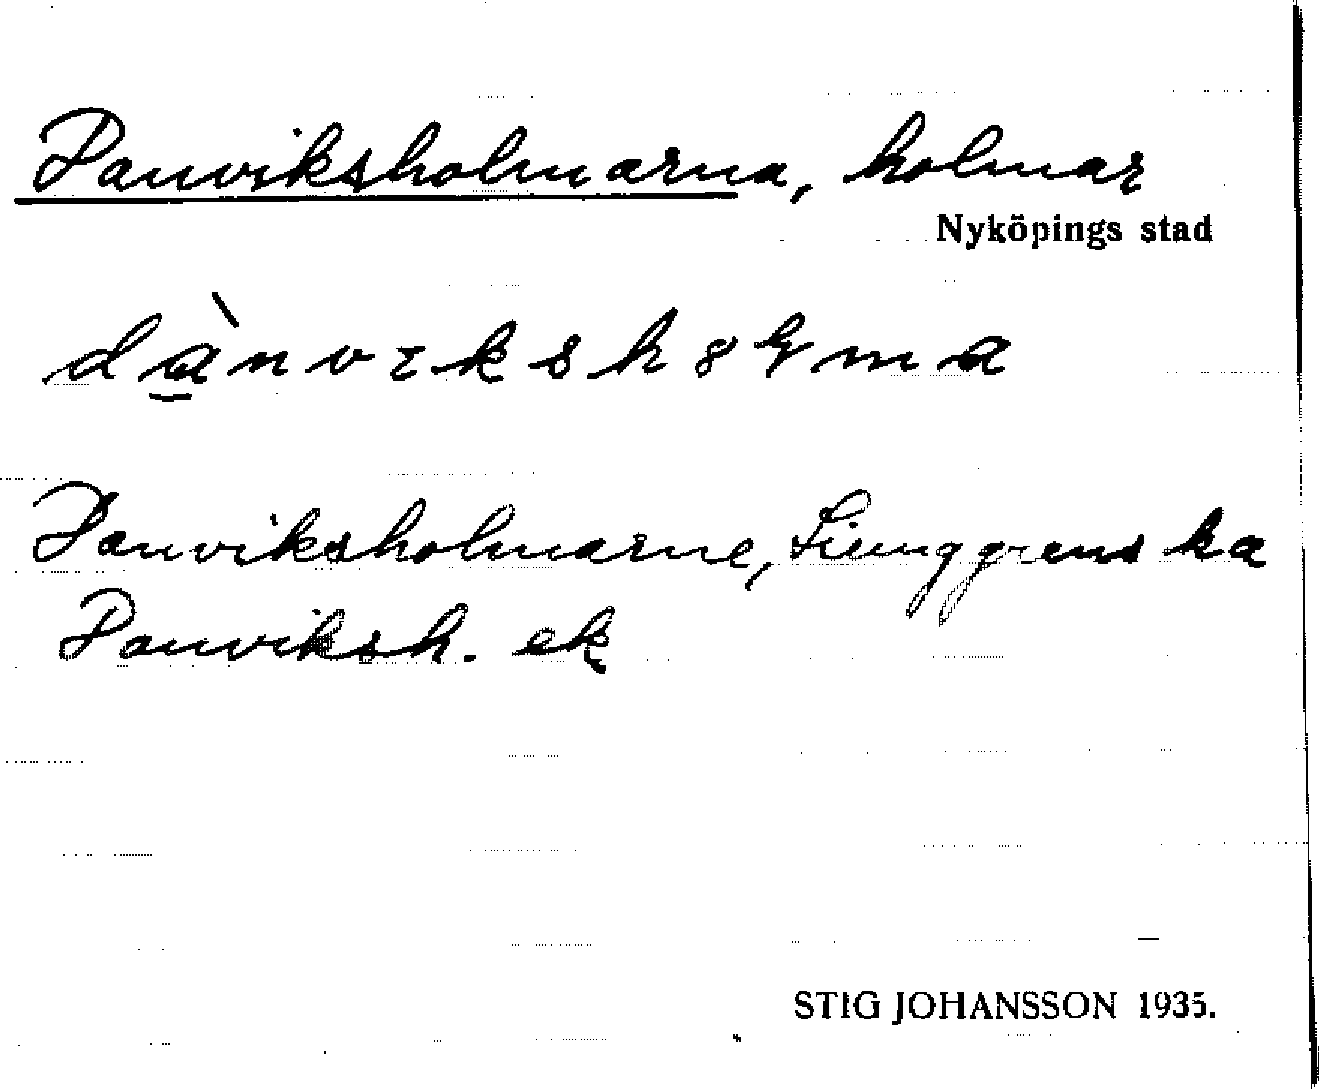 Danviksholmarna, holmar
Nyköpings stad
Danviksholmarne, Ljunggrens ka
Danviksh. ek
STIG JOHANSSON 1935.